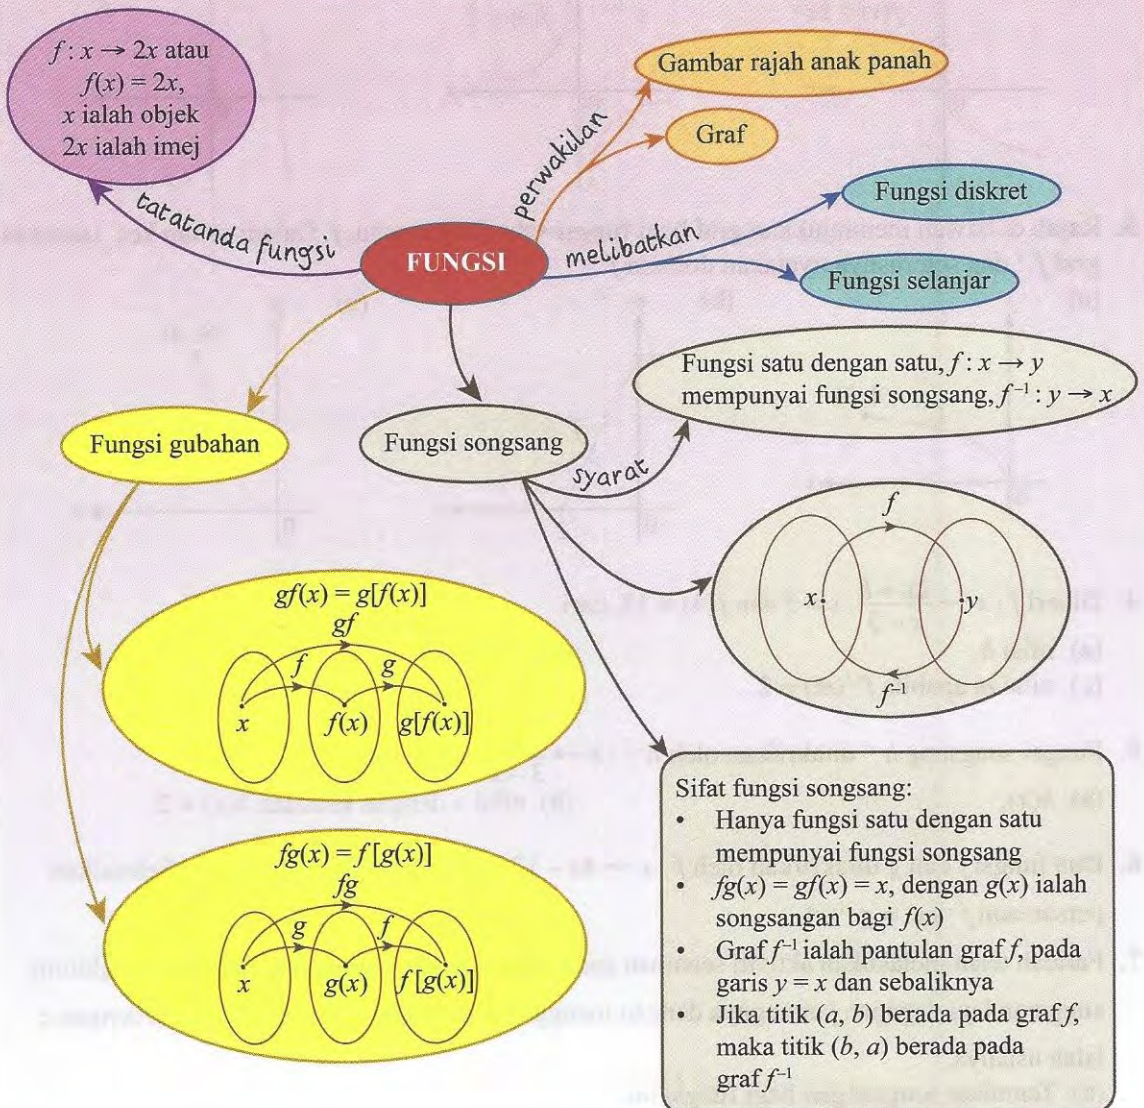 f : x → 2x atau
f(x) = 2x,
x ialah objek
2x ialah imej
tatatanda fungsi
FUNGSI
perwakilan
Gambar rajah anak panah
Graf
melibatkan
Fungsi diskret
Fungsi selanjar
Fungsi gubahan
Fungsi songsang
syarat
Fungsi satu dengan satu, f : x → y
mempunyai fungsi songsang, f⁻¹ : y → x
f
x
y
f⁻¹
gf(x) = g[f(x)]
gf
f
g
x
f(x)
g[f(x)]
fg(x) = f [g(x)]
fg
g
f
x
g(x)
f [g(x)]
Sifat fungsi songsang:
• Hanya fungsi satu dengan satu
mempunyai fungsi songsang
• fg(x) = gf(x) = x, dengan g(x) ialah
songsangan bagi f(x)
• Graf f⁻¹ ialah pantulan graf f, pada
garis y = x dan sebaliknya
• Jika titik (a, b) berada pada graf f,
maka titik (b, a) berada pada
graf f⁻¹